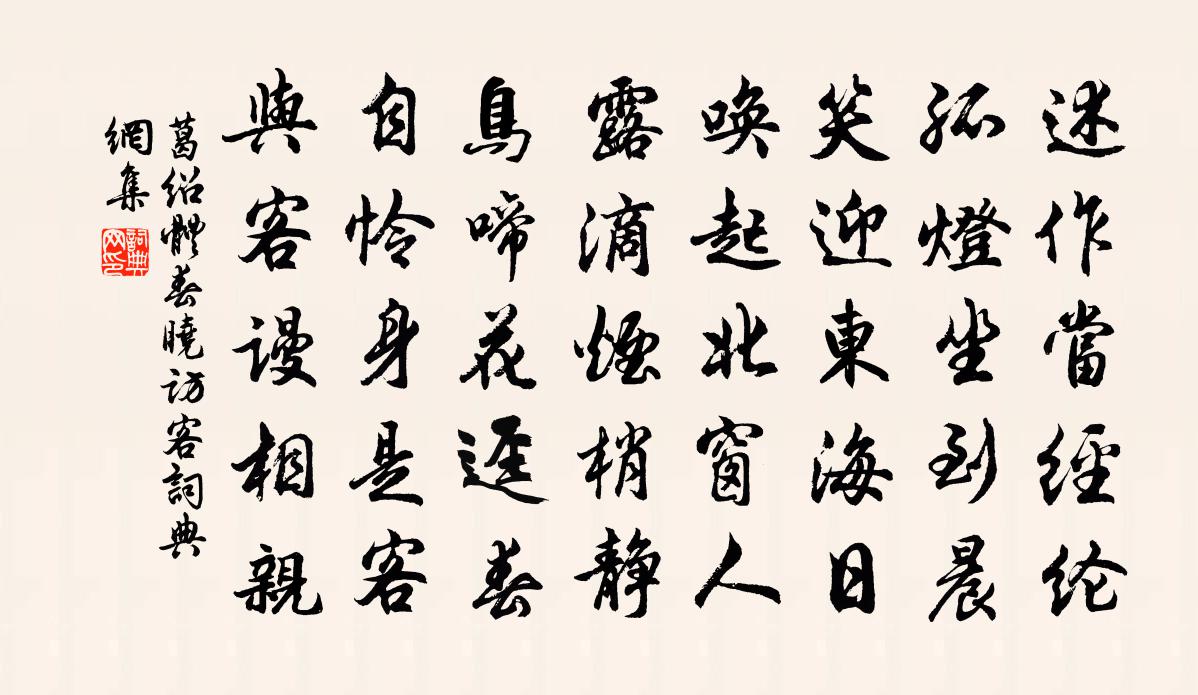 述作當經纶
孤燈坐到晨
笑迎東海日
喚起北窗人
露滴煙梢静
鳥啼花逕春
自怜身是客
與客谩相親
葛绍體春曉访客詞典
網集
詞典网印